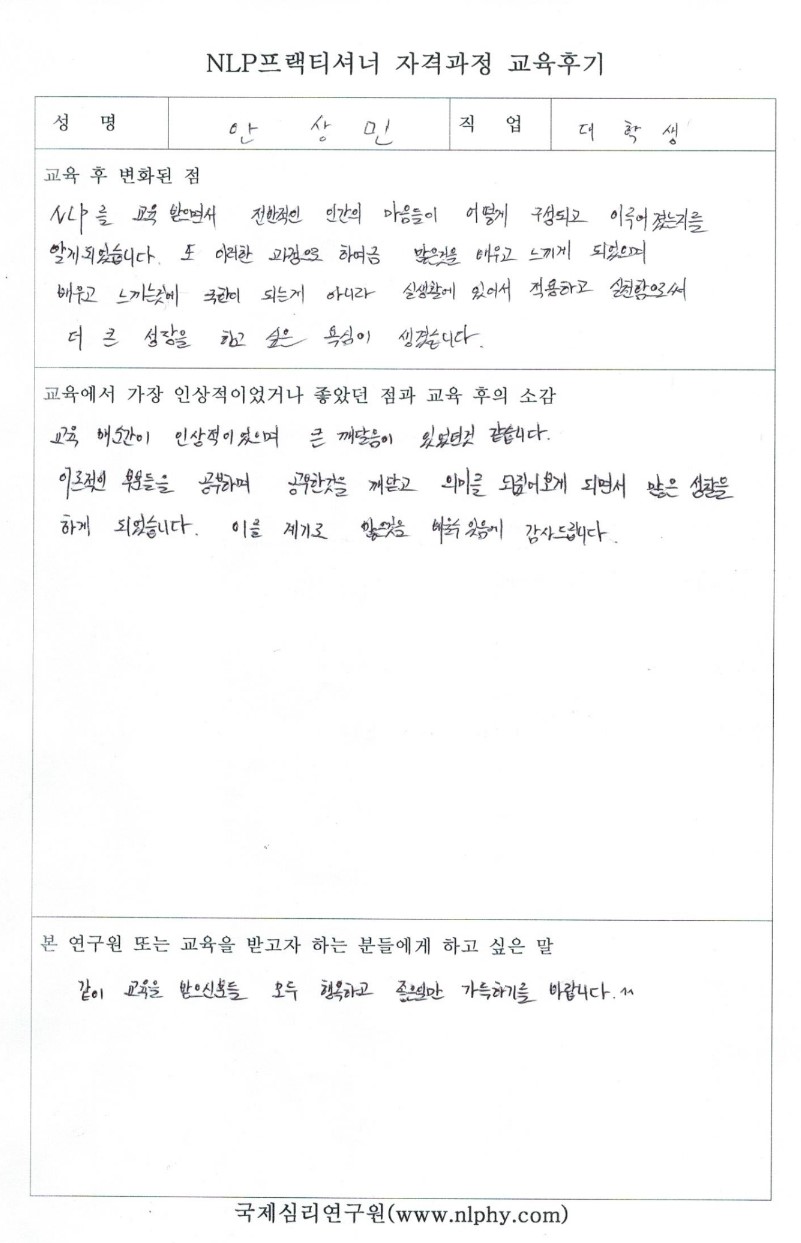 NLP프랙티셔너 자격과정 교육후기
성 명 안 상 민 직 업 대 학 생
교육 후 변화된 점
NLP를 교육 받으면서 전반적인 인간의 마음들이 어떻게 구성되고 이루어졌는지를
알게되었습니다. 또 이러한 과정으로 하여금 많은것을 배우고 느끼게 되었으며
배우고 느끼는것에 국한이 되는게 아니라 실생활에 있어서 적용하고 실천함으로써
더 큰 성장을 하고 싶은 욕심이 생겼습니다.
교육에서 가장 인상적이었거나 좋았던 점과 교육 후의 소감
교육 매순간이 인상적이었으며 큰 깨달음이 있었던것 같습니다.
이론적인 부분들을 공부하며 공부한것을 깨닫고 의미를 되짚어보게 되면서 많은 성찰을
하게 되었습니다. 이를 계기로 많은것을 배울수 있음에 감사드립니다.
본 연구원 또는 교육을 받고자 하는 분들에게 하고 싶은 말
같이 교육을 받으신분들 모두 행복하고 좋은일만 가득하기를 바랍니다.^^
국제심리연구원(www.nlphy.com)